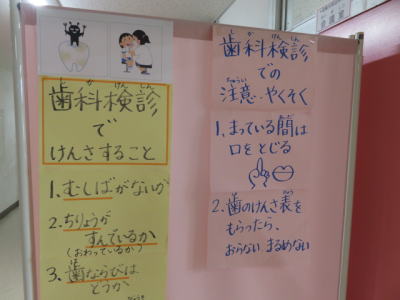 歯科検診
で
けんさすること
1. むしばがないか
2. ちりょうが
すんでいるか
(おわっているか)
3. 歯ならびは
どうか
歯科検診
での
注意・やくそく
1. まっている間は
口をとじる
2. 歯のけんさ表を
もらったら、
おらない まるめない